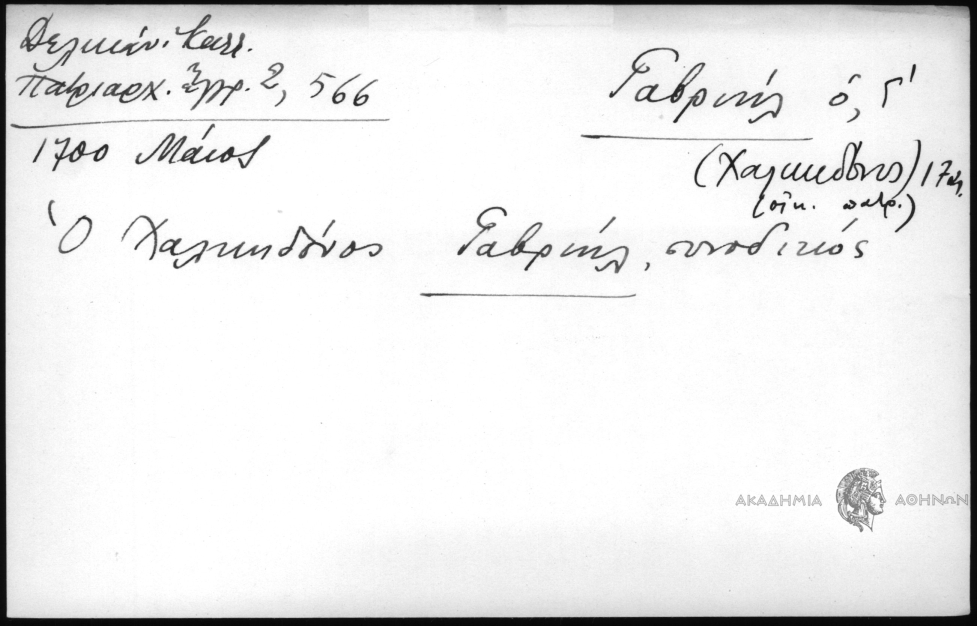 Δελικάνι Καλλ.
Πατριαρχ. Ἔγγρ. 2, 566
1700 Μάιος
Γαβριήλ ὁ, Γ'
(Χαλκηδόνος)
(οἰκ. πατρ.)
Ὁ Χαλκηδόνος Γαβριήλ, συνοδικός
ΑΚΑΔΗΜΙΑ ΑΘΗΝΩΝ